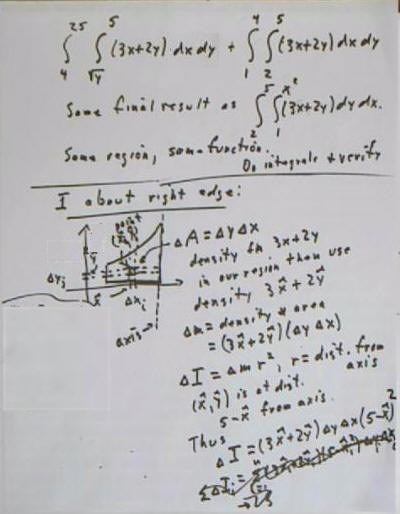 ∫₄²⁵ ∫_{√y}^5 (3x+2y) dx dy + ∫₁⁴ ∫₂⁵ (3x+2y) dx dy
Same final result as ∫₂⁵ ∫₁^{x²} (3x+2y) dy dx.
Same region, same function.
Do integrals & verify
I about right edge:
point
(x̂,ŷ)
ΔA = Δy Δx
density fn 3x+2y
in our region then use
density 3x̂ + 2ŷ
Δy_j
ŷ
x̂
Δx_i
axis
Δm = density * area
= (3x̂+2ŷ)(Δy Δx)
ΔI = Δm r², r = dist. from
axis
(x̂,ŷ) is at dist.
5-x̂ from axis.
Thus
ΔI = (3x̂+2ŷ) Δy Δx (5-x̂)²